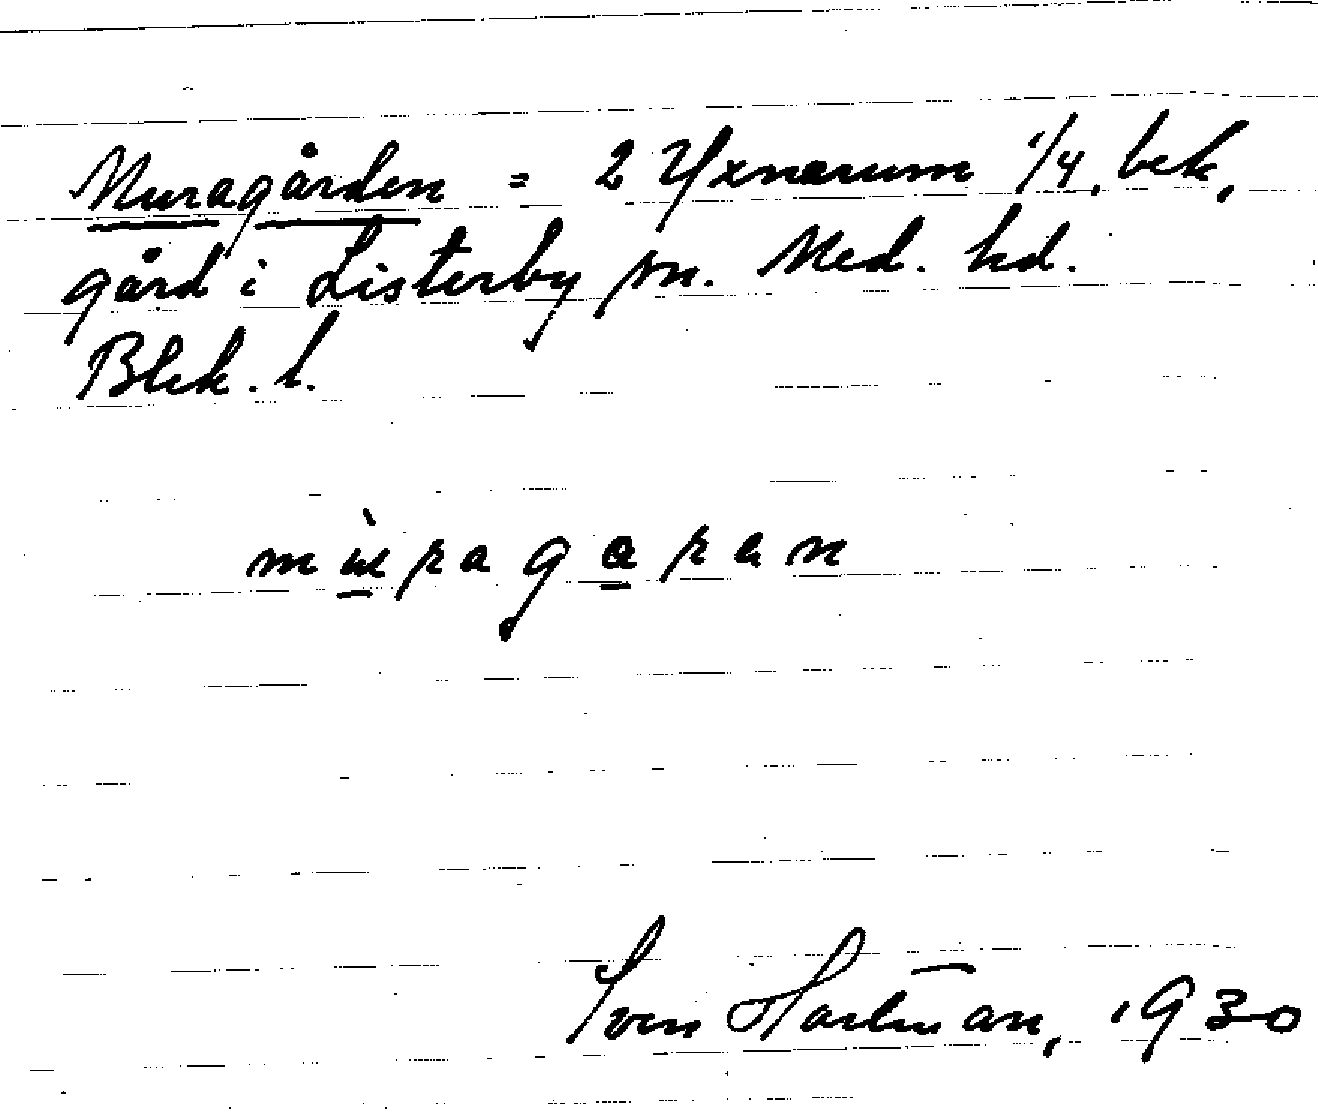 Muragården = 2 Yxnarum 1/4, bek,
gård i Listerby sn. Med. hd.
Blek. l.
Sven Hartman, 1930